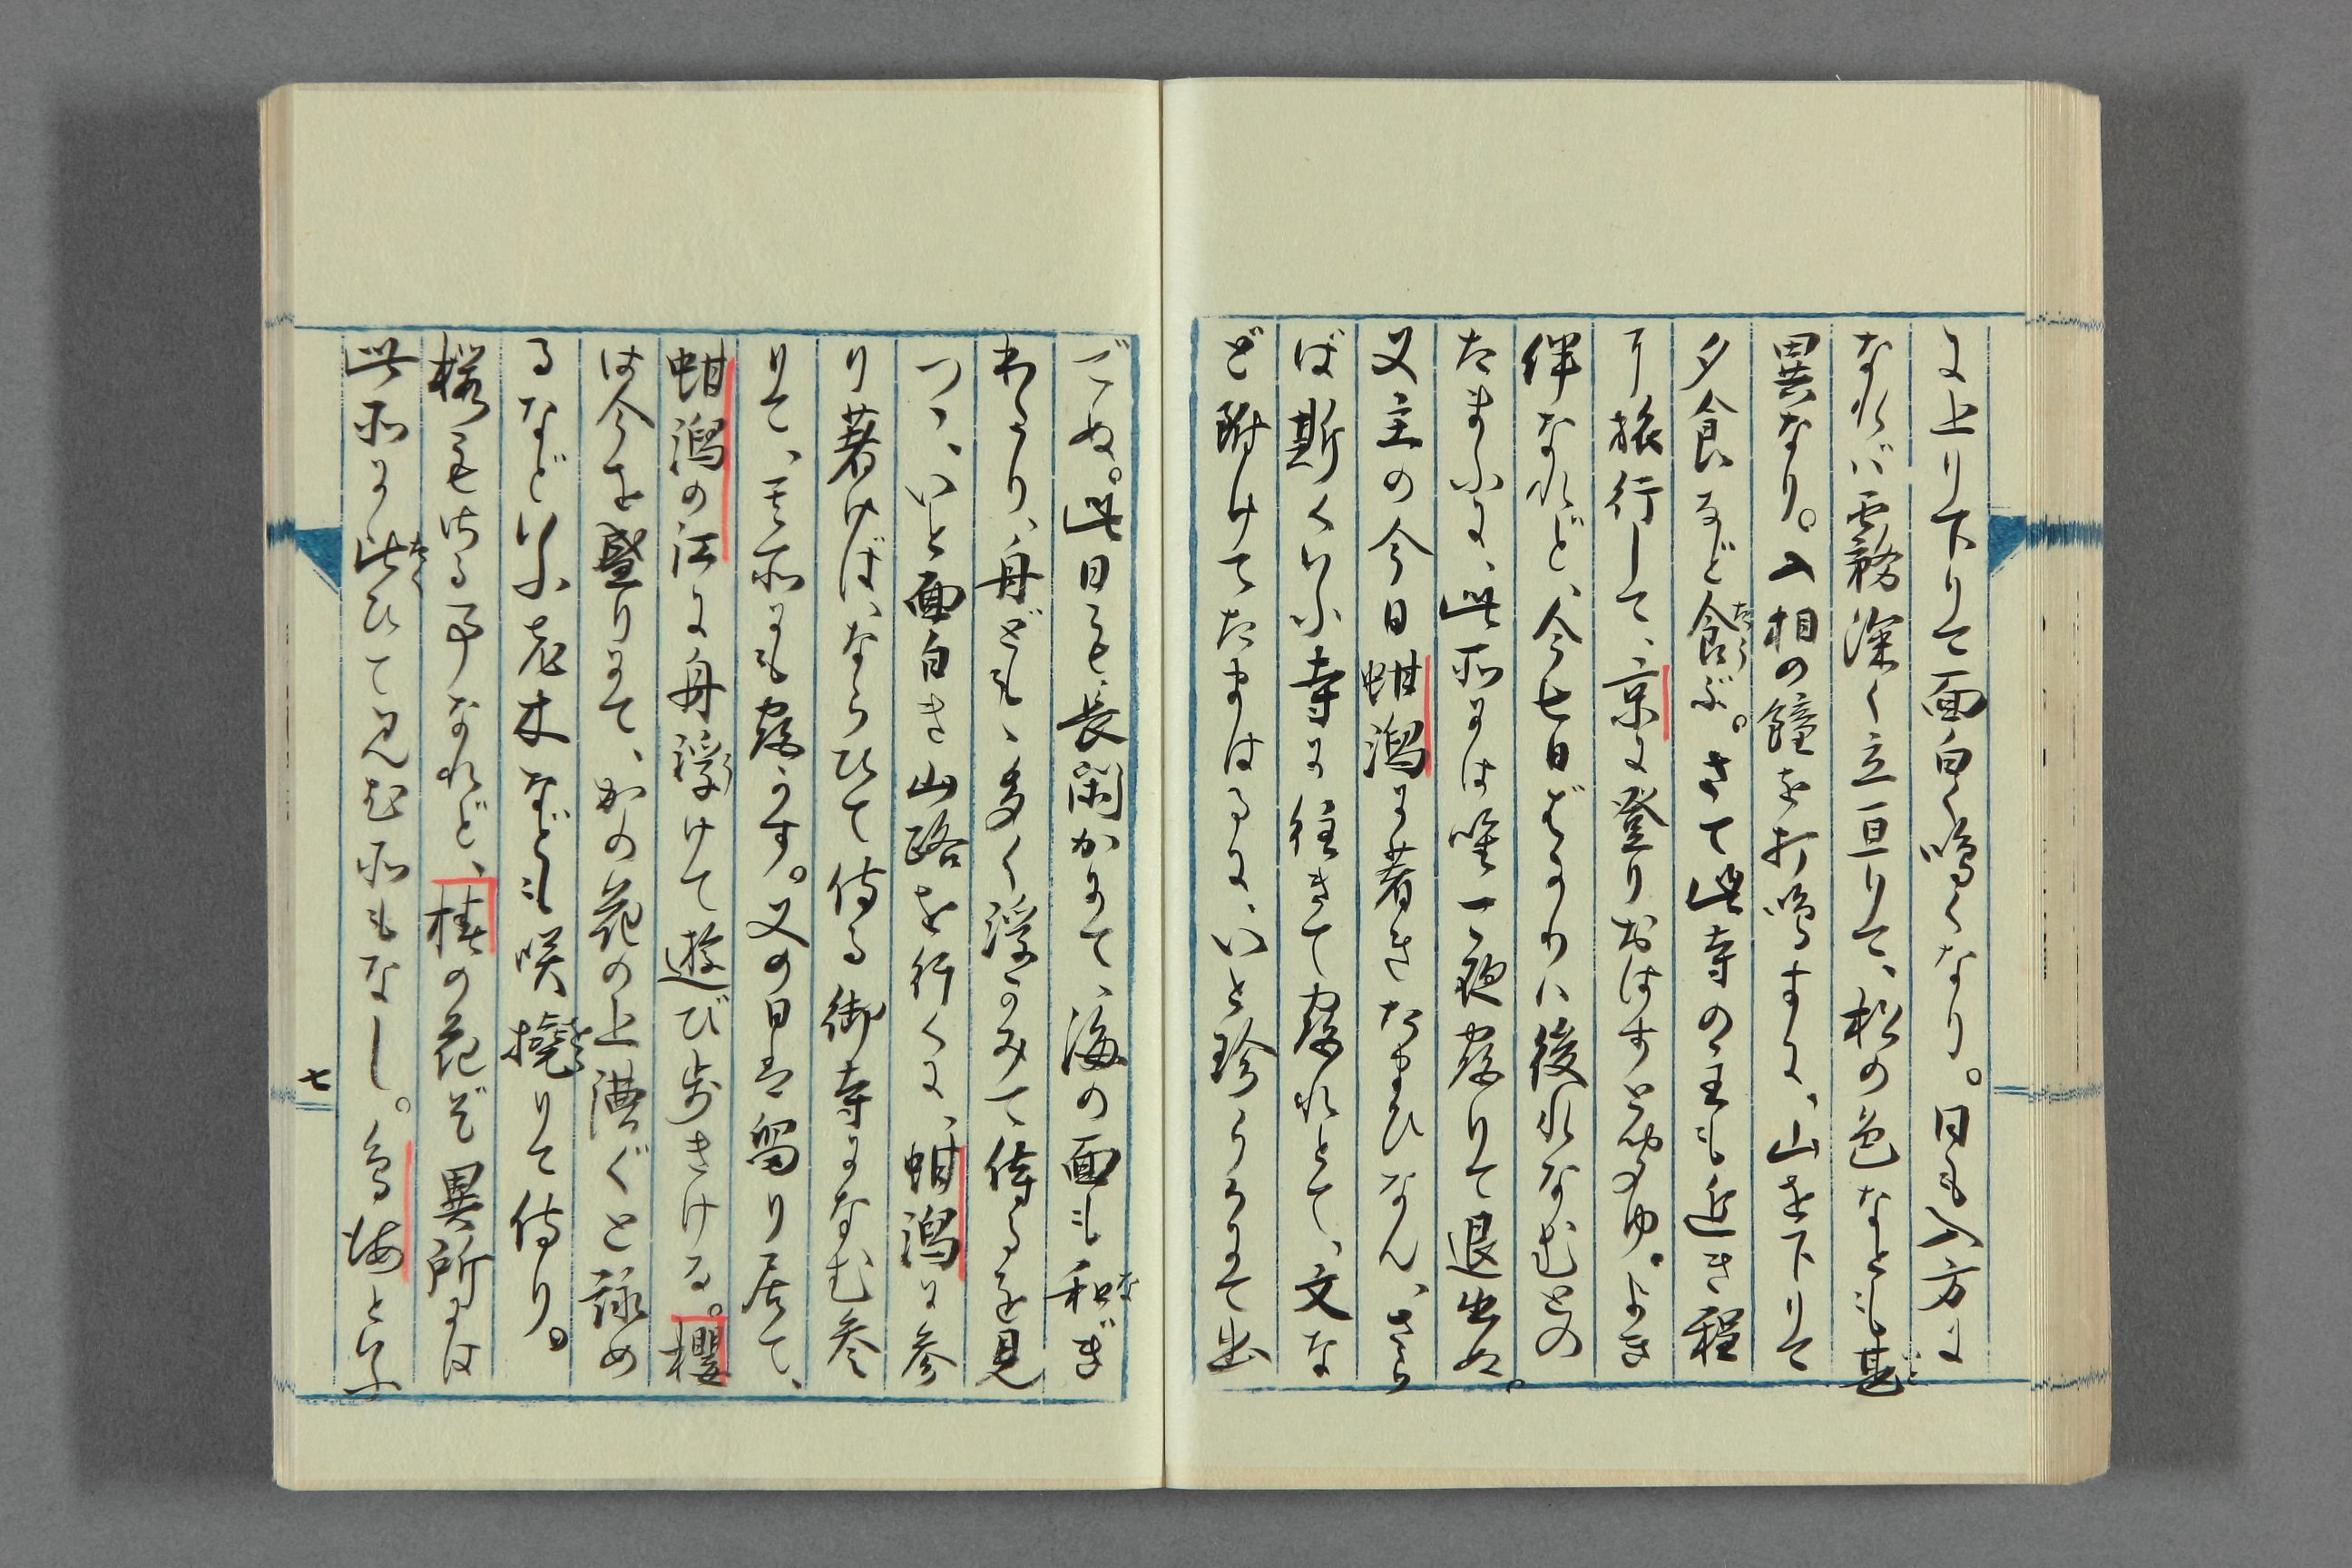 に上り下りて面白く鳴くなり。日も入方に
なれバ雲霧深く立亘りて、松の色なども甚
異なり。入相の鐘を打鳴すに、山を下りて
夕食など食ぶ。さて此寺の主も近き程
に旅行して、京に登りおはすと聞ゆ。よき
伴なれど、今七日ばかりハ後れなむとの
たまふに、此所には唯一夜寝りて退出ぬ。
又主の今日蚶潟に著きたまひなん、さら
ば斯くいふ寺に往きて寝れとて、文な
ど附けてたまはるに、いと珍らかにて出
でぬ。此日も長閑かにて、海の面も和ぎ
わたり、舟ども多く浮かみて侍るを見
つゝ、いと面白き山路を行くに、蚶潟に参
り著けば、ならひて侍る御寺になむ参
りて、其所にも寝かす。又の日は留り居て、
蚶潟の江に舟浮けて遊び歩きける。櫻
は今を盛りにて、かの花の上漕ぐと詠め
るなどいふ老木なども咲撓りて侍り。
桜もはる事なれど、椿の花ぞ異所には
此所に比ひて見む所もなし。鳥海といふ
七